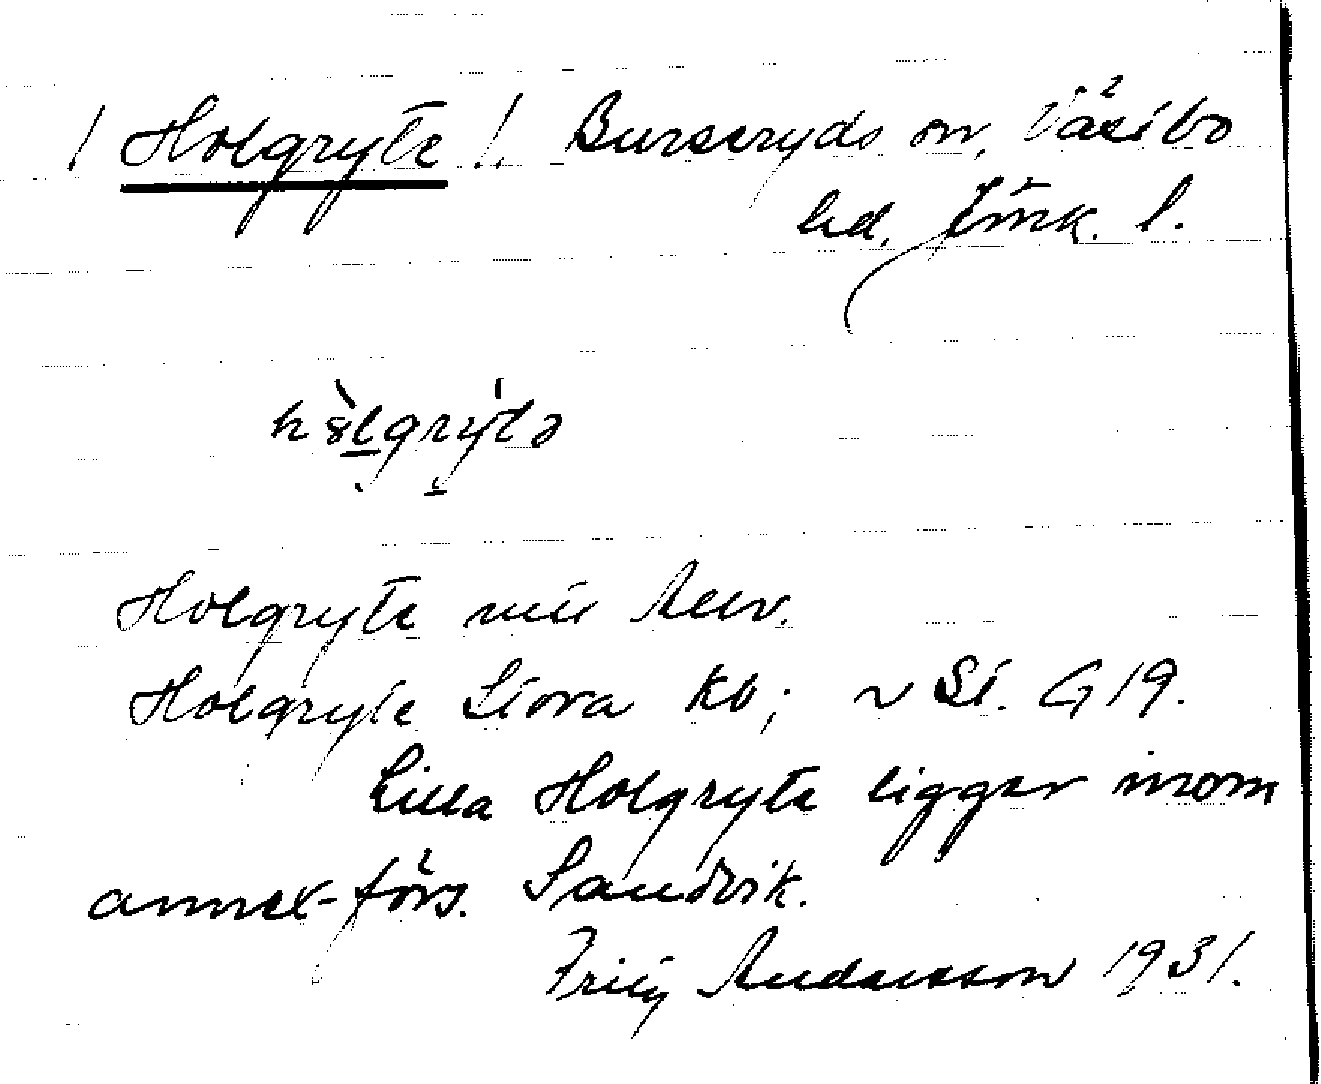 / Holgryte /. Burseryds sn, Västbo
hd, Jönk. l.
Holgryte
Holgryte Stora kb; ~ St. G 19.
Lilla Holgryte ligger inom
annex-förs. Sandvik.
Andersson 1931.